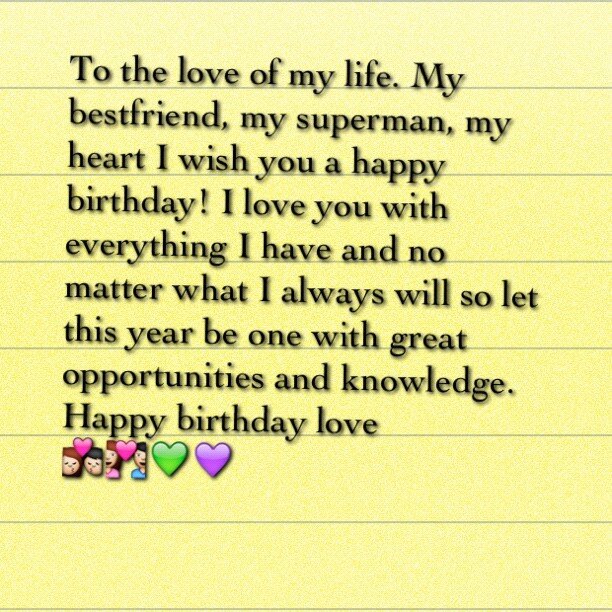 To the love of my life. My
bestfriend, my superman, my
heart I wish you a happy
birthday! I love you with
everything I have and no
matter what I always will so let
this year be one with great
opportunities and knowledge.
Happy birthday love
💏💑💚💜